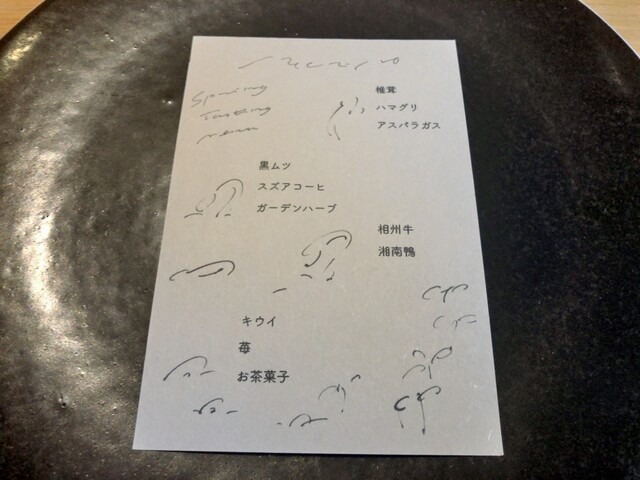 Spring
Tasting
menu
椎茸
ハマグリ
アスパラガス
黒ムツ
スズアコーヒ
ガーデンハーブ
相州牛
湘南鴨
キウイ
苺
お茶菓子